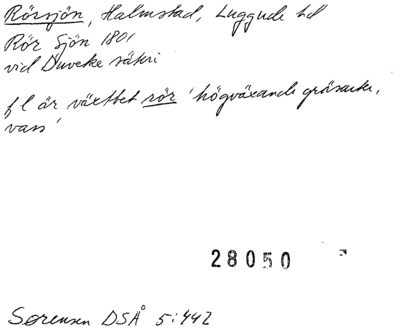 Rörsjön, Halmstad, Luggude hd
Rör Sjön 1801
vid Duveke säteri
f l är växtbet rör 'högväxande gräsarter,
vass'
28050
Sørensen DSÅ 5:442